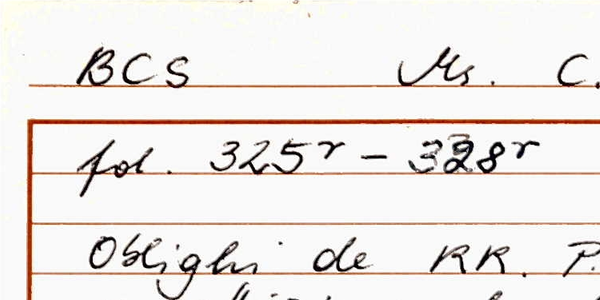 BCS Ms. C.
fol. 325r - 328r
Oblighi de RR. P.